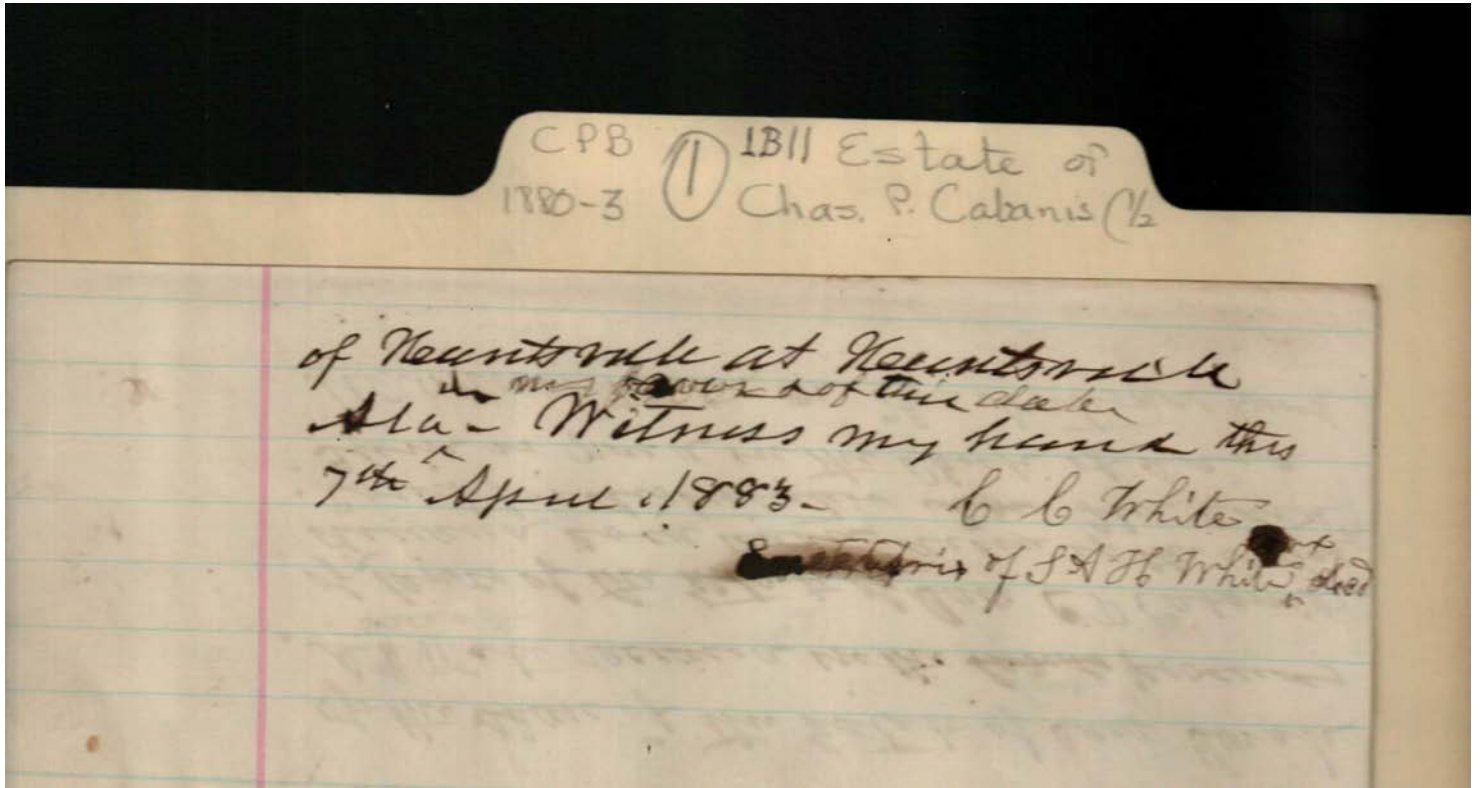 CPB ① 1B11 Estate of
1880-3 Chas. P. Cabanis (1/2
of Huntsville at Huntsville
in my favor & of this date
Ala - ^ Witness my hand this
7th April, 1883 - C C White
of S A H White, decd